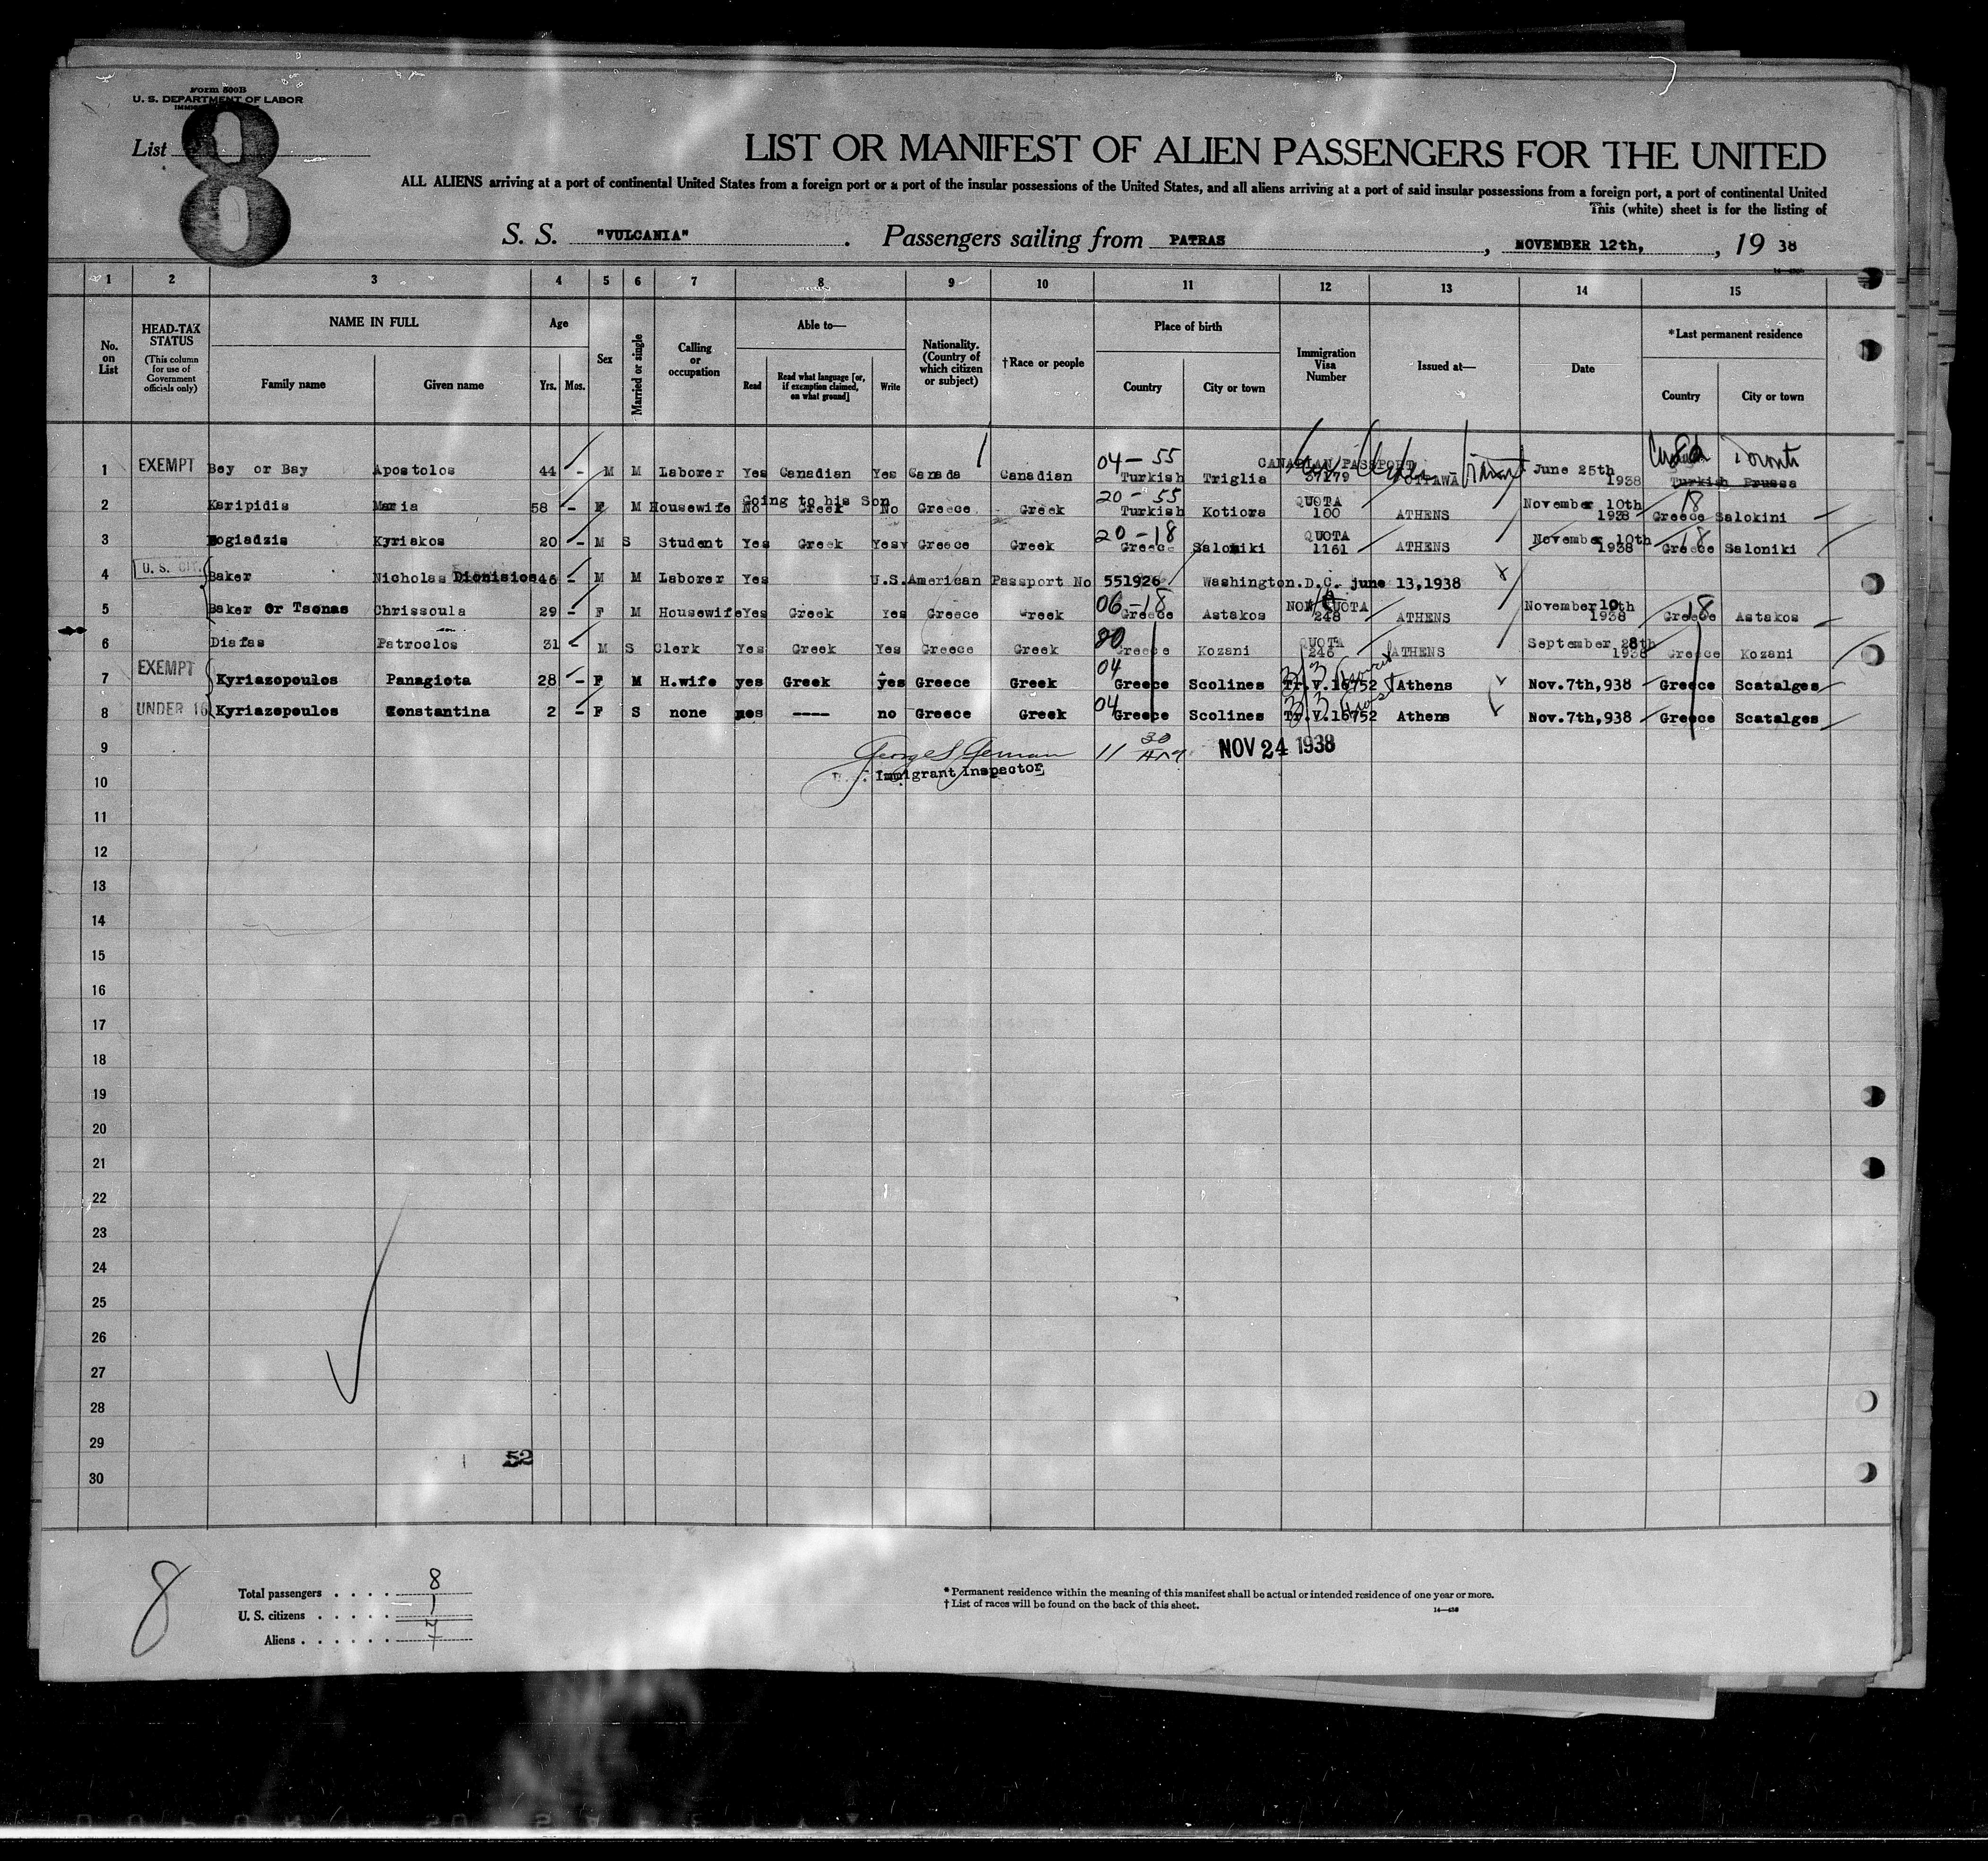 Form 500B
U. S. DEPARTMENT OF LABOR
List 8
LIST OR MANIFEST OF ALIEN PASSENGERS FOR THE UNITED
ALL ALIENS arriving at a port of continental United States from a foreign port or a port of the insular possessions of the United States, and all aliens arriving at a port of said insular possessions from a foreign port, a port of continental United
This (white) sheet is for the listing of
S. S. "VULCANIA". Passengers sailing from PATRAS, NOVEMBER 12th, , 19 38
1 2 3 4 5 6 7 8 9 10 11 12 13 14 15
No. on List
HEAD-TAX STATUS
(This column for use of Government officials only)
NAME IN FULL
Family name Given name
Age
Yrs. Mos.
Sex
Married or single
Calling or occupation
Able to—
Read
Read what language [or, if exemption claimed, on what ground]
Write
Nationality. (Country of which citizen or subject)
†Race or people
Place of birth
Country City or town
Immigration Visa Number
Issued at—
Date
*Last permanent residence
Country City or town
1 EXEMPT Bey or Bay Apostolos 44 - M M Laborer Yes Canadian Yes Canada Canadian 04-55 Turkish Triglia CANADIAN PASSPORT 37179 OTTAWA June 25th 1938 Turkish Prussa Toronto
Going to his Son
2 Karipidis Maria 58 - F M Housewife No Greek No Greece Greek 20-55 Turkish Kotiora QUOTA 100 ATHENS November 10th 1938 18 Greece Salokini
3 Mogiadzis Kyriakos 20 - M S Student Yes Greek Yes Greece Greek 20-18 Greece Saloniki QUOTA 1161 ATHENS November 10th 1938 18 Greece Saloniki
4 U. S. CIT. Baker Nicholas Dionisios 46 - M M Laborer Yes U.S. American Passport No 551926 Washington.D.C. june 13,1938
5 Baker Or Tsonas Chrissoula 29 - F M Housewife Yes Greek Yes Greece Greek 06-18 Greece Astakos NON QUOTA 248 ATHENS November 10th 1938 18 Greece Astakos
6 Diafas Patroclos 31 - M S Clerk Yes Greek Yes Greece Greek 80 Greece Kozani QUOTA 246 ATHENS September 28th 1938 Greece Kozani
7 EXEMPT Kyriazopoulos Panagiota 28 - F M H.wife yes Greek yes Greece Greek 04 Greece Scolines Tr.V.16752 Athens Nov.7th,938 Greece Scatalges
8 UNDER 16 Kyriazopoulos Constantina 2 - F S none ---- no Greece Greek 04 Greece Scolines Tr.V.16752 Athens Nov.7th,938 Greece Scatalges
9 11 30 NOV 24 1938
Immigrant Inspector
10
11
12
13
14
15
16
17
18
19
20
21
22
23
24
25
26
27
28
29 52
30
8
Total passengers . . . . 8
U. S. citizens . . . . . 1
Aliens . . . . . . 7
* Permanent residence within the meaning of this manifest shall be actual or intended residence of one year or more.
† List of races will be found on the back of this sheet.